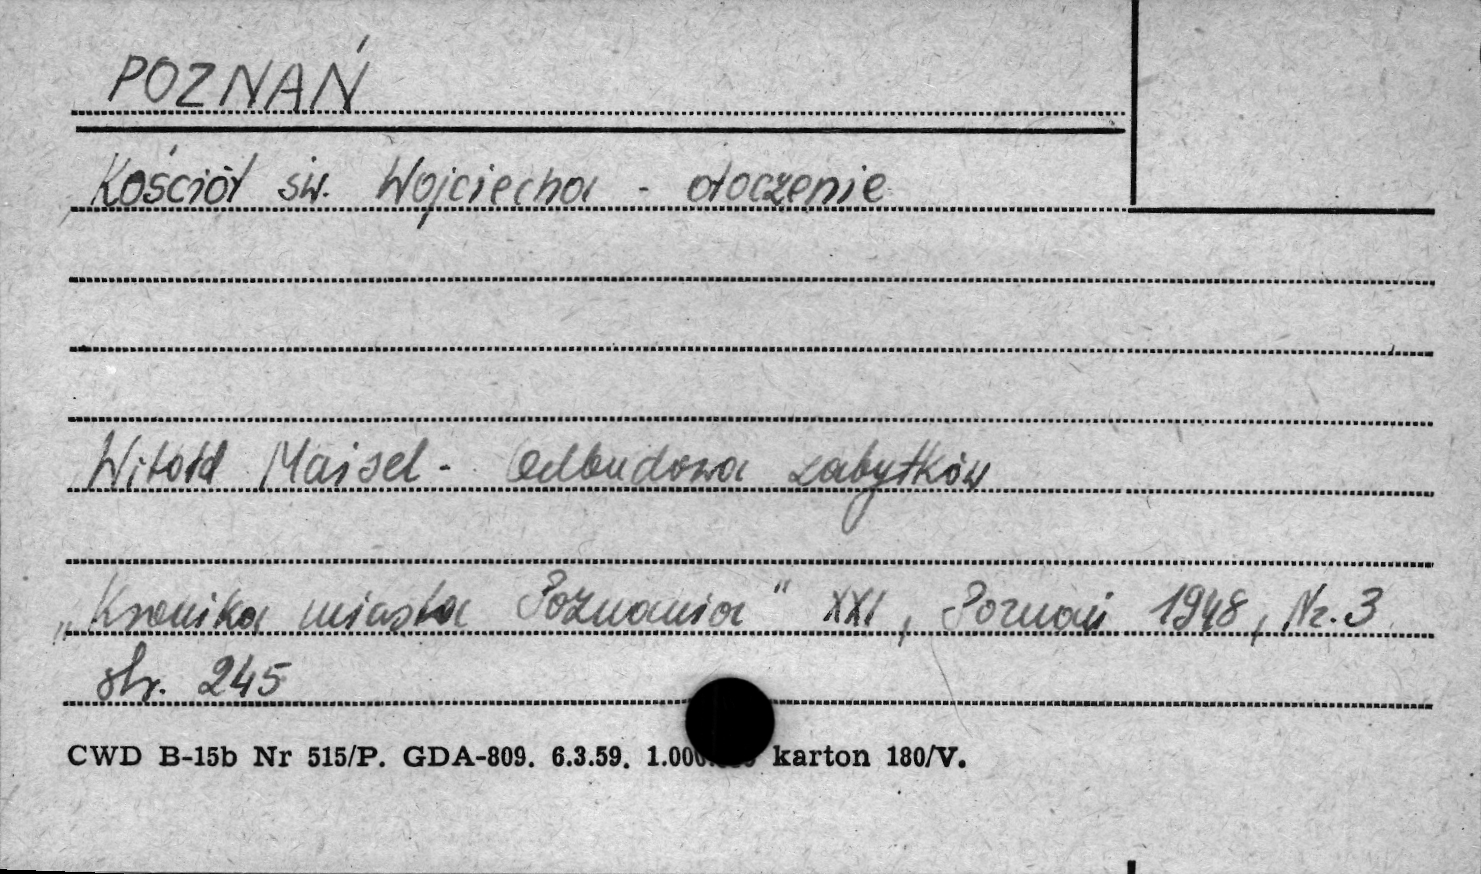 POZNAŃ
Kościół św. Wojciecha - otoczenie
Witold Maisel - Odbudowa zabytków
„Kronika miasta Poznania" XXI, Poznań 1948, Nr. 3
str. 245
CWD B-15b Nr 515/P. GDA-809. 6.3.59. 1.000.000 karton 180/V.